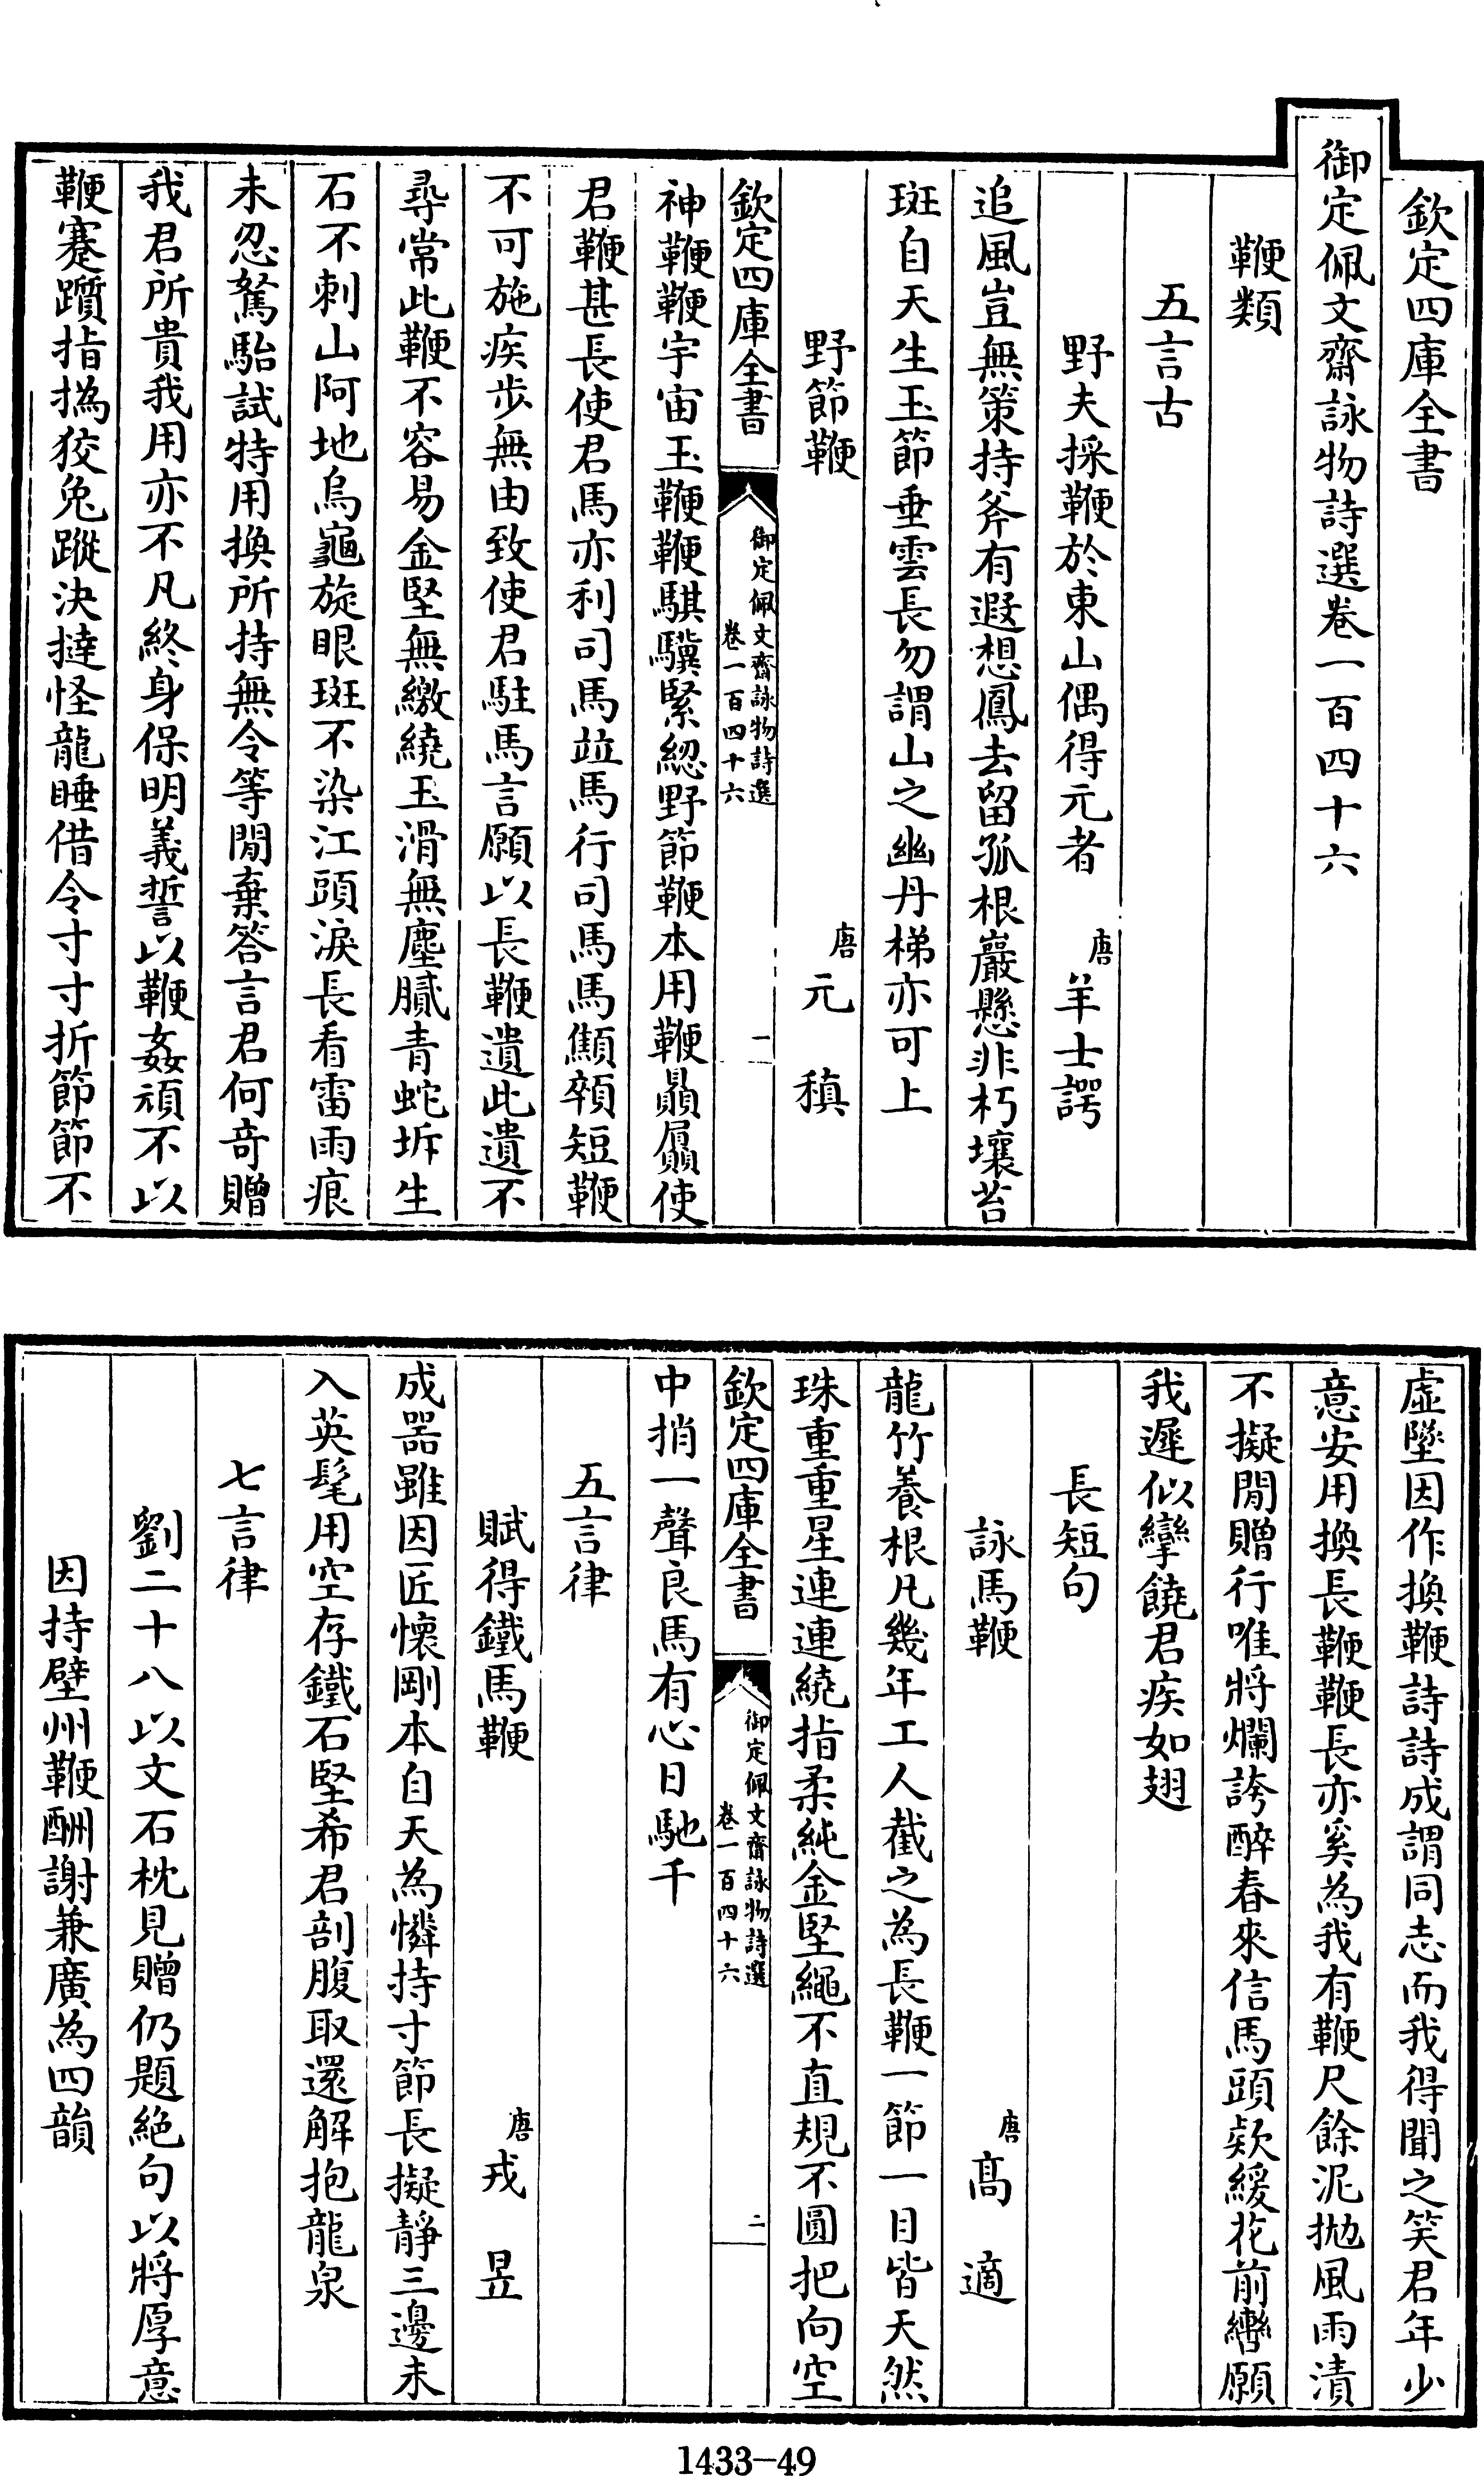 欽定四庫全書
御定佩文齋詠物詩選卷一百四十六
鞭類
五言古
野夫採鞭於東山偶得元者 唐 羊士諤
追風豈無策持斧有遐想鳳去留孤根巖懸非朽壤苔
斑自天生玉節垂雲長勿謂山之幽丹梯亦可上
野節鞭 唐 元 稹
欽定四庫全書 御定佩文齋詠物詩選 卷一百四十六 一
神鞭鞭宇宙玉鞭鞭騏驥緊綛野節鞭本用鞭贔屭使
君鞭甚長使君馬亦利司馬並馬行司馬馬顦顇短鞭
不可施疾步無由致使君駐馬言願以長鞭遺此遺不
尋常此鞭不容易金堅無繳繞玉滑無塵膩青蛇坼生
石不刺山阿地烏龜旋眼斑不染江頭淚長看雷雨痕
未忍駑駘試特用換所持無令等閒棄答言君何奇贈
我君所貴我用亦不凡終身保明義誓以鞭姦頑不以
鞭蹇躓指撝狡兔蹤決撻怪龍睡借令寸寸折節節不
虛墜因作換鞭詩詩成謂同志而我得聞之笑君年少
意安用換長鞭鞭長亦奚為我有鞭尺餘泥拋風雨漬
不擬閒贈行唯將爛誇醉春來信馬頭欵緩花前轡願
我遲似攣饒君疾如翅
長短句
詠馬鞭 唐 高 適
龍竹養根凡幾年工人截之為長鞭一節一目皆天然
珠重重星連連繞指柔純金堅繩不直規不圓把向空
欽定四庫全書 御定佩文齋詠物詩選 卷一百四十六 二
中捎一聲良馬有心日馳千
五言律
賦得鐵馬鞭 唐 戎 昱
成器雖因匠懷剛本自天為憐持寸節長擬靜三邊未
入英髦用空存鐵石堅希君剖腹取還解抱龍泉
七言律
劉二十八以文石枕見贈仍題絕句以將厚意
因持壁州鞭酬謝兼廣為四韻
1433-49